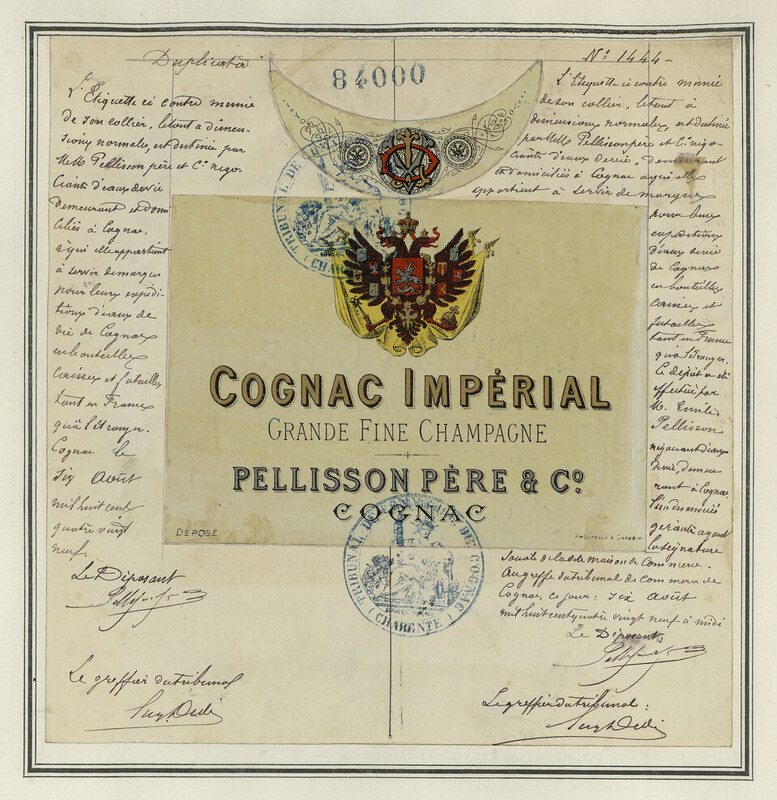 Duplicata
84000
N° 1444
L'Etiquette ci contre munie
de son collier, le tout à dimen-
sions normales, est destinée par
MMrs Pellisson père et Co négo-
ciants d'eaux de vie
demeurant et domi
ciliés à Cognac,
à qui elle appartient
à servir de marque
pour leurs expédi-
tions d'eaux de
vie de Cognac
en bouteilles
caisses et futailles
tant en France
qu'à l'étranger.
Cognac le
six Août
mil huit cent
quatre vingt
neuf.
Le Déposant
Le greffier du tribunal
L'Etiquette ci contre munie
de son collier, le tout à
dimensions normales, est destinée
par MMrs Pellisson père et Co négo-
ciants d'eaux de vie, demeurant
et domiciliés à Cognac à qui elle
appartient à servir de marque
pour leurs
expéditions
d'eaux de vie
de Cognac
en bouteilles
caisses et
futailles
tant en France
qu'à l'étranger.
Ce dépôt a été
effectué par
M. Emile
Pellisson
négociant d'eaux
de vie, demeu
rant à Cognac
l'un des associés
gérants ayant
la signature
sociale de la dite maison de commerce.
Au greffe du tribunal de commerce de
Cognac, ce jour: six Août
mil huit cent quatre vingt neuf à midi
Le Déposant
Le greffier du tribunal:
COGNAC IMPÉRIAL
GRANDE FINE CHAMPAGNE
PELLISSON PÈRE & Co
COGNAC
DÉPOSÉ
TRIBUNAL DE COMMERCE DE COGNAC
(CHARENTE)